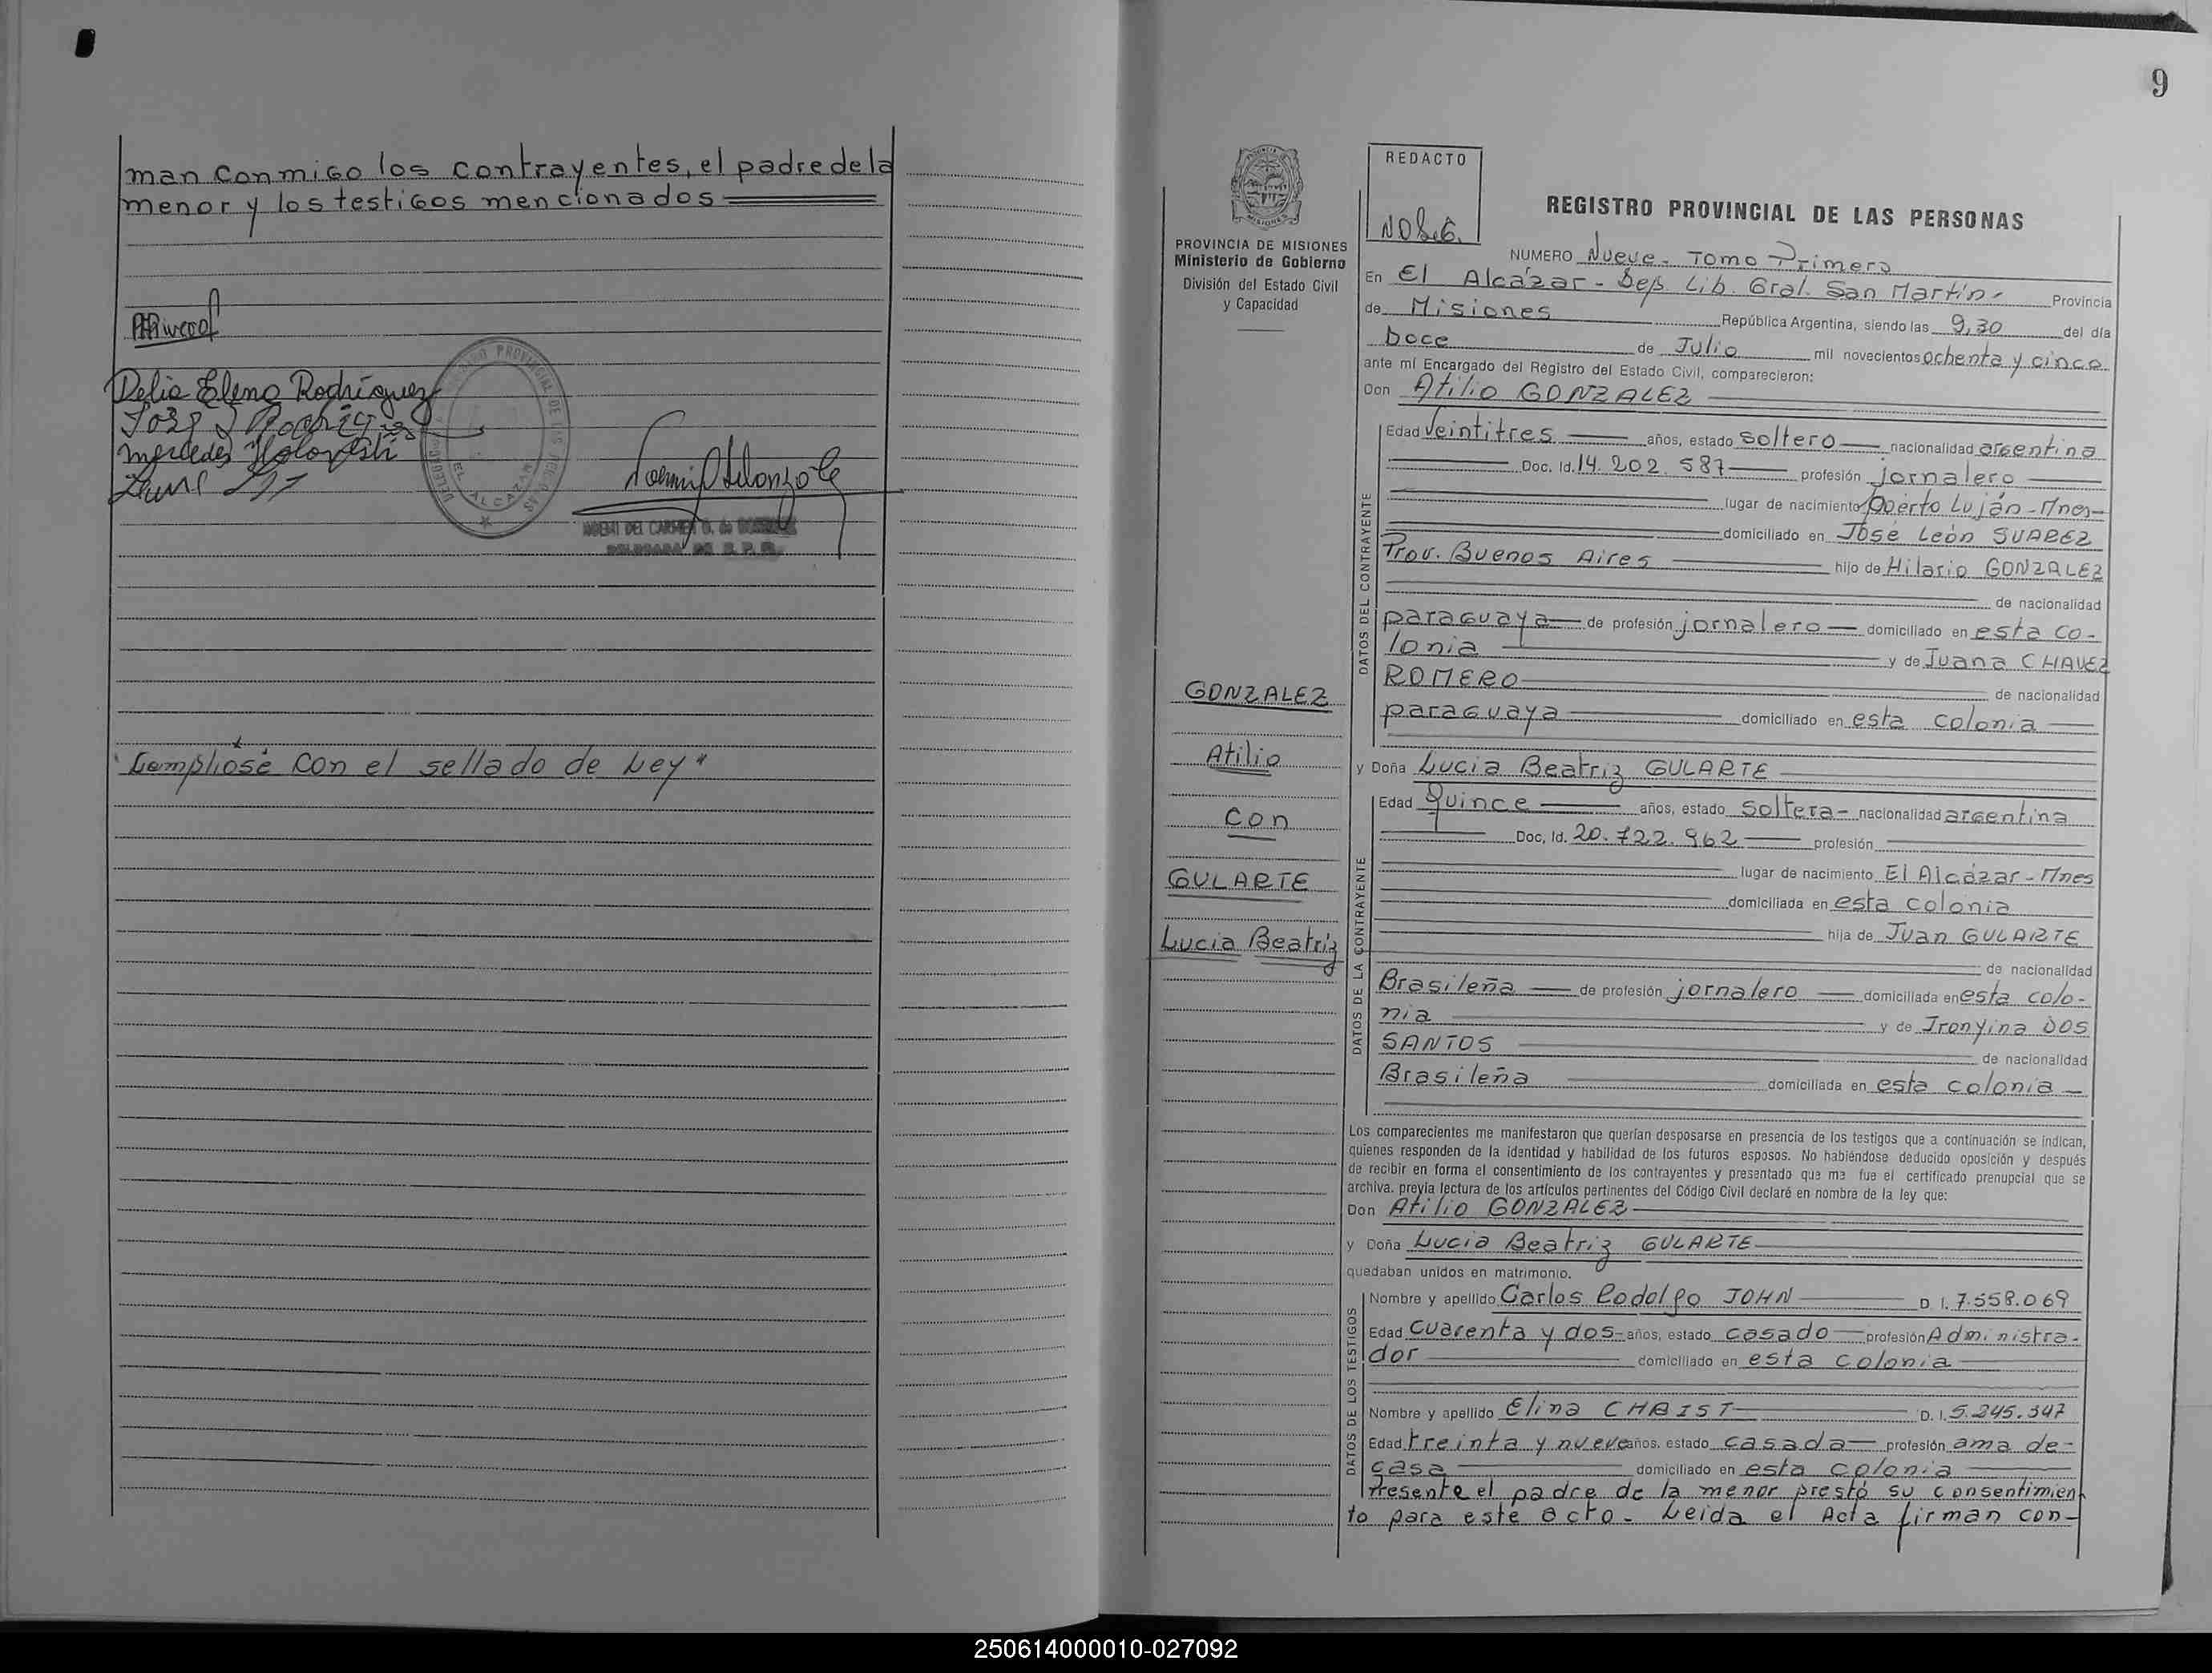 man conmigo los contrayentes, el padre de la
menor y los testigos mencionados
Delia Elena Rodríguez
Mercedes
EL ALCAZAR
"Complióse con el sellado de Ley"
9
PROVINCIA DE MISIONES
Ministerio de Gobierno
División del Estado Civil
y Capacidad
GONZALEZ
Atilio
con
GULARTE
Lucia Beatriz
REDACTO
REGISTRO PROVINCIAL DE LAS PERSONAS
NUMERO Nueve - Tomo Primero
En El Alcázar - Dep. Lib. Gral. San Martín - Provincia
de Misiones República Argentina, siendo las 9,30 del día
Doce de Julio mil novecientos ochenta y cinco
ante mí Encargado del Registro del Estado Civil, comparecieron:
Don Atilio GONZALEZ
DATOS DEL CONTRAYENTE
Edad Veintitres años, estado soltero nacionalidad argentina
Doc. Id. 14.202.587 profesión jornalero
lugar de nacimiento Puerto Luján - Mnes -
domiciliado en José León SUAREZ
Prov. Buenos Aires hijo de Hilario GONZALEZ
de nacionalidad
paraguaya de profesión jornalero domiciliado en esta co-
lonia y de Juana CHAVEZ
ROMERO de nacionalidad
paraguaya domiciliado en esta colonia
y Doña Lucia Beatriz GULARTE
DATOS DE LA CONTRAYENTE
Edad Quince años, estado soltera - nacionalidad argentina
Doc. Id. 20.722.962 profesión
lugar de nacimiento El Alcázar - Mnes
domiciliada en esta colonia
hija de Juan GULARTE
de nacionalidad
Brasileña de profesión jornalero domiciliada en esta colo-
nia y de Ironyina DOS
SANTOS de nacionalidad
Brasileña domiciliada en esta colonia
Los comparecientes me manifestaron que querían desposarse en presencia de los testigos que a continuación se indican,
quienes responden de la identidad y habilidad de los futuros esposos. No habiéndose deducido oposición y después
de recibir en forma el consentimiento de los contrayentes y presentado que me fue el certificado prenupcial que se
archiva. previa lectura de los artículos pertinentes del Código Civil declaré en nombre de la ley que:
Don Atilio GONZALEZ
y Doña Lucia Beatriz GULARTE
quedaban unidos en matrimonio.
DATOS DE LOS TESTIGOS
Nombre y apellido Carlos Rodolfo JOHN D. I. 7.558.069
Edad Cuarenta y dos años, estado casado profesión Administra-
dor domiciliado en esta colonia
Nombre y apellido Elina CHRIST D. I. 5.245.347
Edad treinta y nueve años, estado casada profesión ama de-
casa domiciliado en esta colonia
Presente el padre de la menor prestó su consentimien
to para este acto - Leida el Acta firman con-
250614000010-027092